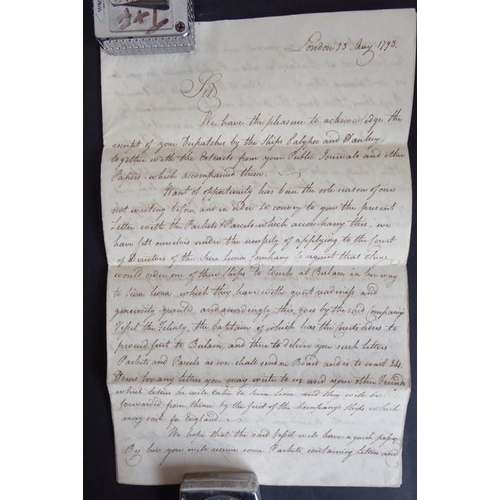 London 13 May 1793.
Sir
We have the pleasure to acknowledge the
receipt of your Dispatches by the Ships Calypso and Hankey,
together with the Extracts from your Public Journals and other
Papers which accompanied them.
Want of opportunity has been the sole reason of our
not writing before and in order to convey to you the present
Letter with the Packets & Parcels which accompany this, we
have felt ourselves under the necessity of applying to the Court
of Directors of the Sierra Leona Company to request that they
would order one of their Ships to touch at Bulam in her way
to Sierra Leona, which they have with great readiness and
generosity granted and accordingly this goes by the said Company's
Vessel the Felicity, the Captain of which has the orders
to proceed first to Bulam, and then to deliver you such Letters
Packets and Parcels as we shall send on Board and is to wait 24
Hours for any letters you may write to us and your other Friends
which letters he will take to Sierra Leona and they will be
forwarded from thence by the first of the Company's Ships which
may sail for England.
We hope that the said Vessel will have a quick passage
By her you will receive some Packets containing Letters and